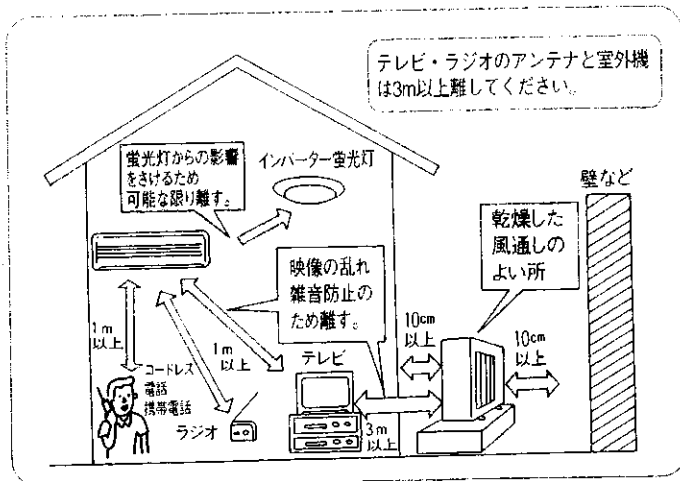 テレビ・ラジオのアンテナと室外機
は3m以上離してください。
蛍光灯からの影響
をさけるため
可能な限り離す。
インバーター蛍光灯
壁など
乾燥した
風通しの
よい所
映像の乱れ
雑音防止の
ため離す。
1m
以上
1m
以上
テレビ
10cm
以上
10cm
以上
コードレス
電話
携帯電話
ラジオ
3m
以上